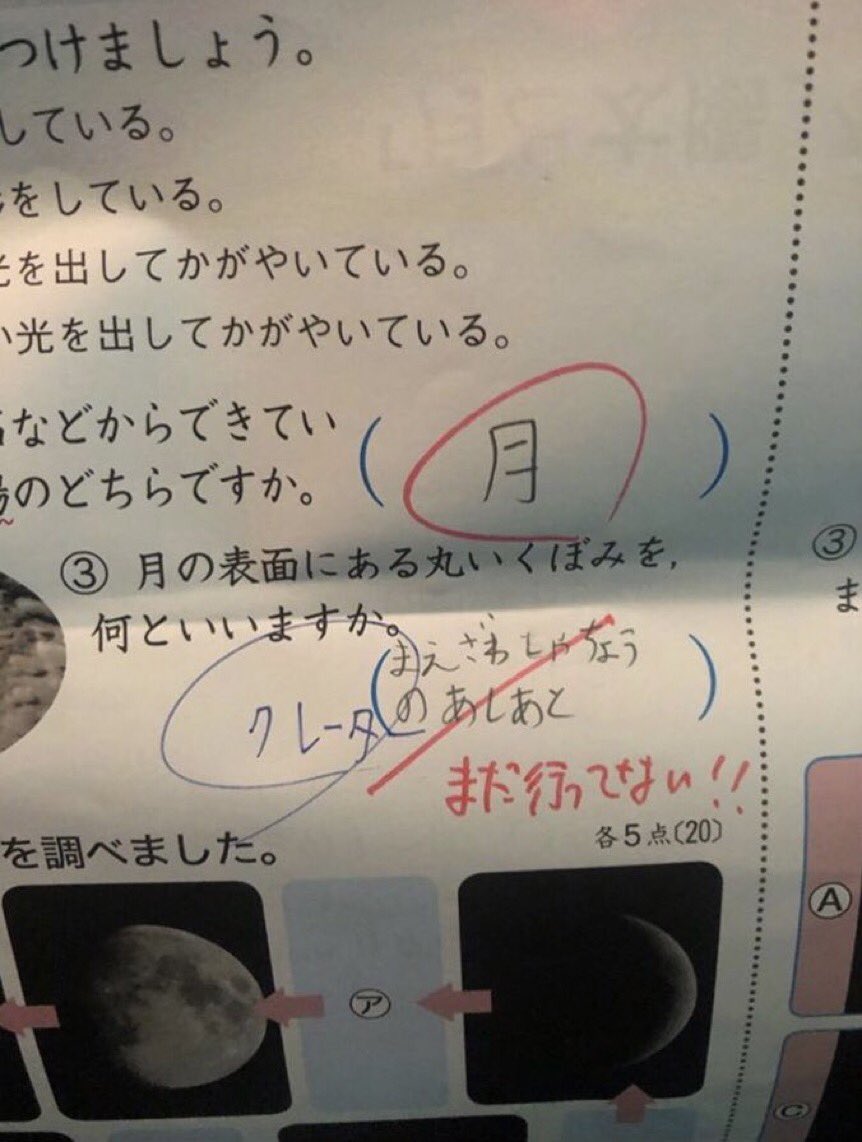 つけましょう。
している。
をしている。
光を出してかがやいている。
い光を出してかがやいている。
などからできてい
のどちらですか。
( 月 )
③ 月の表面にある丸いくぼみを,
何といいますか。
(まえざわしゃちょう
のあしあと)
クレータ
まだ行ってない!!
各5点(20)
を調べました。
ア
③
ま
A
C